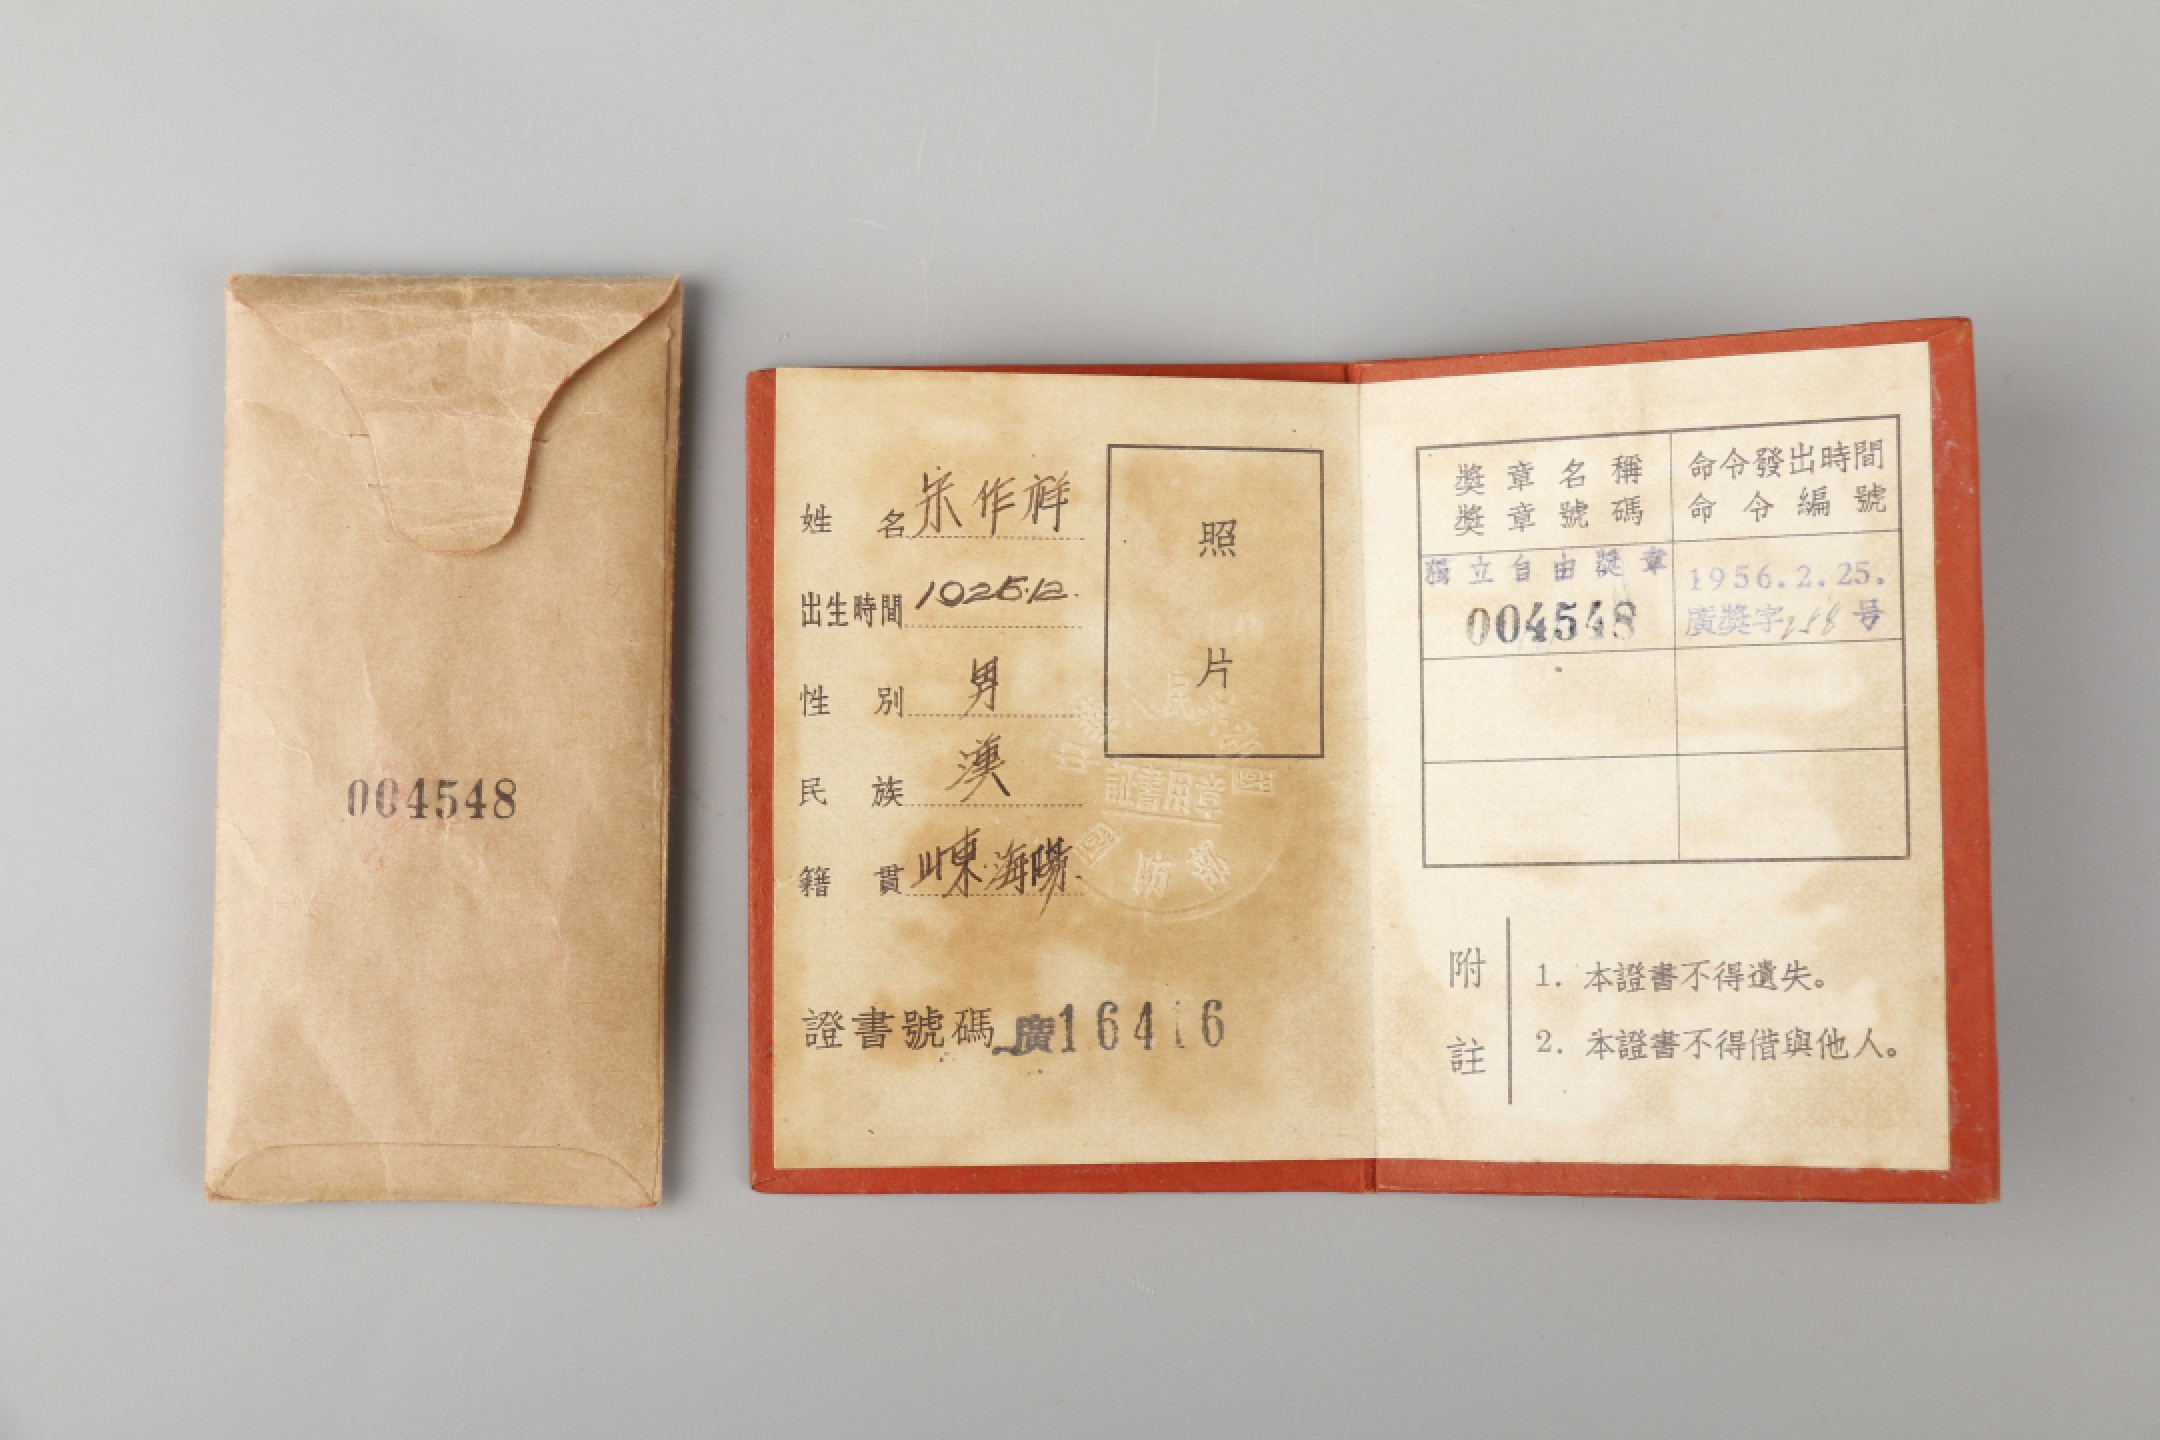 004548
姓名 宋作祥
出生時間 1925.12.
性別 男
民族 漢
籍貫 山東海陽.
證書號碼 廣16416
照片
中華人民共和國
證書用章
國防部
獎章名稱
獎章號碼
命令發出時間
命令編號
獨立自由獎章
004548
1956.2.25.
廣獎字258号
附註
1. 本證書不得遺失。
2. 本證書不得借與他人。